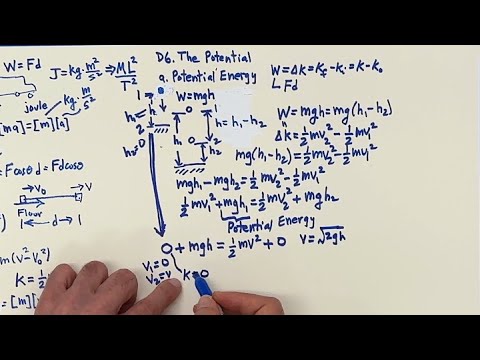 W = Fd
J = kg·m²/s² ⇒ ML²/T²
joule
kg·m/s²
[ma] = [m][a]
Fcosθ d = Fd cosθ
v₀
v
Floor
1 ← d → 1
m(v² - v₀²)
K = 1/2
= [m][v
D6. The Potential
a. Potential Energy
W = mgh
1
h
h₁
2
h₂=0
h = h₁ - h₂
h₁
h₂
W = ΔK = K_f - K_i = K - K₀
Fd
W = mgh = mg(h₁ - h₂)
ΔK = 1/2 mv₂² - 1/2 mv₁²
mg(h₁ - h₂) = 1/2 mv₂² - 1/2 mv₁²
mgh₁ - mgh₂ = 1/2 mv₂² - 1/2 mv₁²
1/2 mv₁² + mgh₁ = 1/2 mv₂² + mgh₂
Potential Energy
0 + mgh = 1/2 mv² + 0
v = √2gh
v₁ = 0
v₂ = v
K = 0